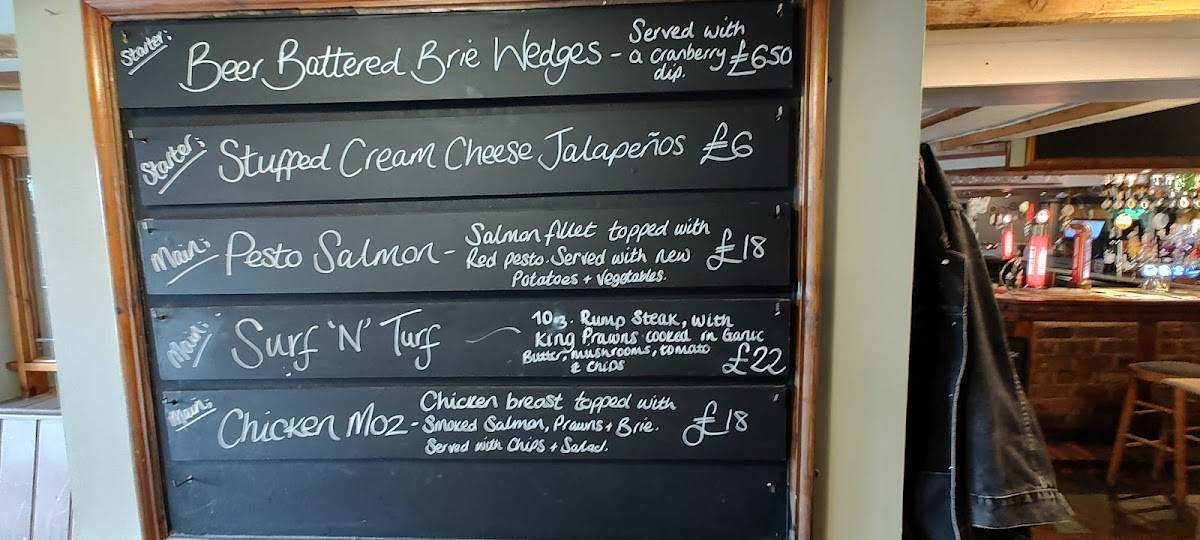 Starter:
Beer Battered Brie Wedges -
Served with
a cranberry
dip.
£6.50
Starter:
Stuffed Cream Cheese Jalapeños £6
Main:
Pesto Salmon -
Salmon fillet topped with
Red pesto. Served with new
Potatoes + Vegetables.
£18
Main:
Surf 'N' Turf
10oz. Rump Steak, with
King Prawns cooked in Garlic
Butter, mushrooms, tomato
& chips
£22
Main:
Chicken Moz -
Chicken breast topped with
Smoked Salmon, Prawns + Brie.
Served with Chips + Salad.
£18